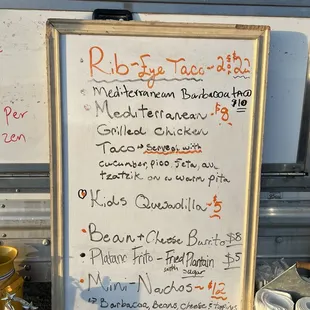 Per
zen
Rib-Eye Taco - 2 for $22
Mediterranean Barbacoa TACO
$10
Mediterranean - $8
Grilled Chicken
Taco → Served with
cucumber, pico, feta, au
tzatzik on a warm pita
Kids Quesadilla - $5
Bean + Cheese Burrito $8
Platano Frito - Fried Plantain $5
with sugar
Mini-Nachos - $12
Barbacoa, Beans, Cheese &